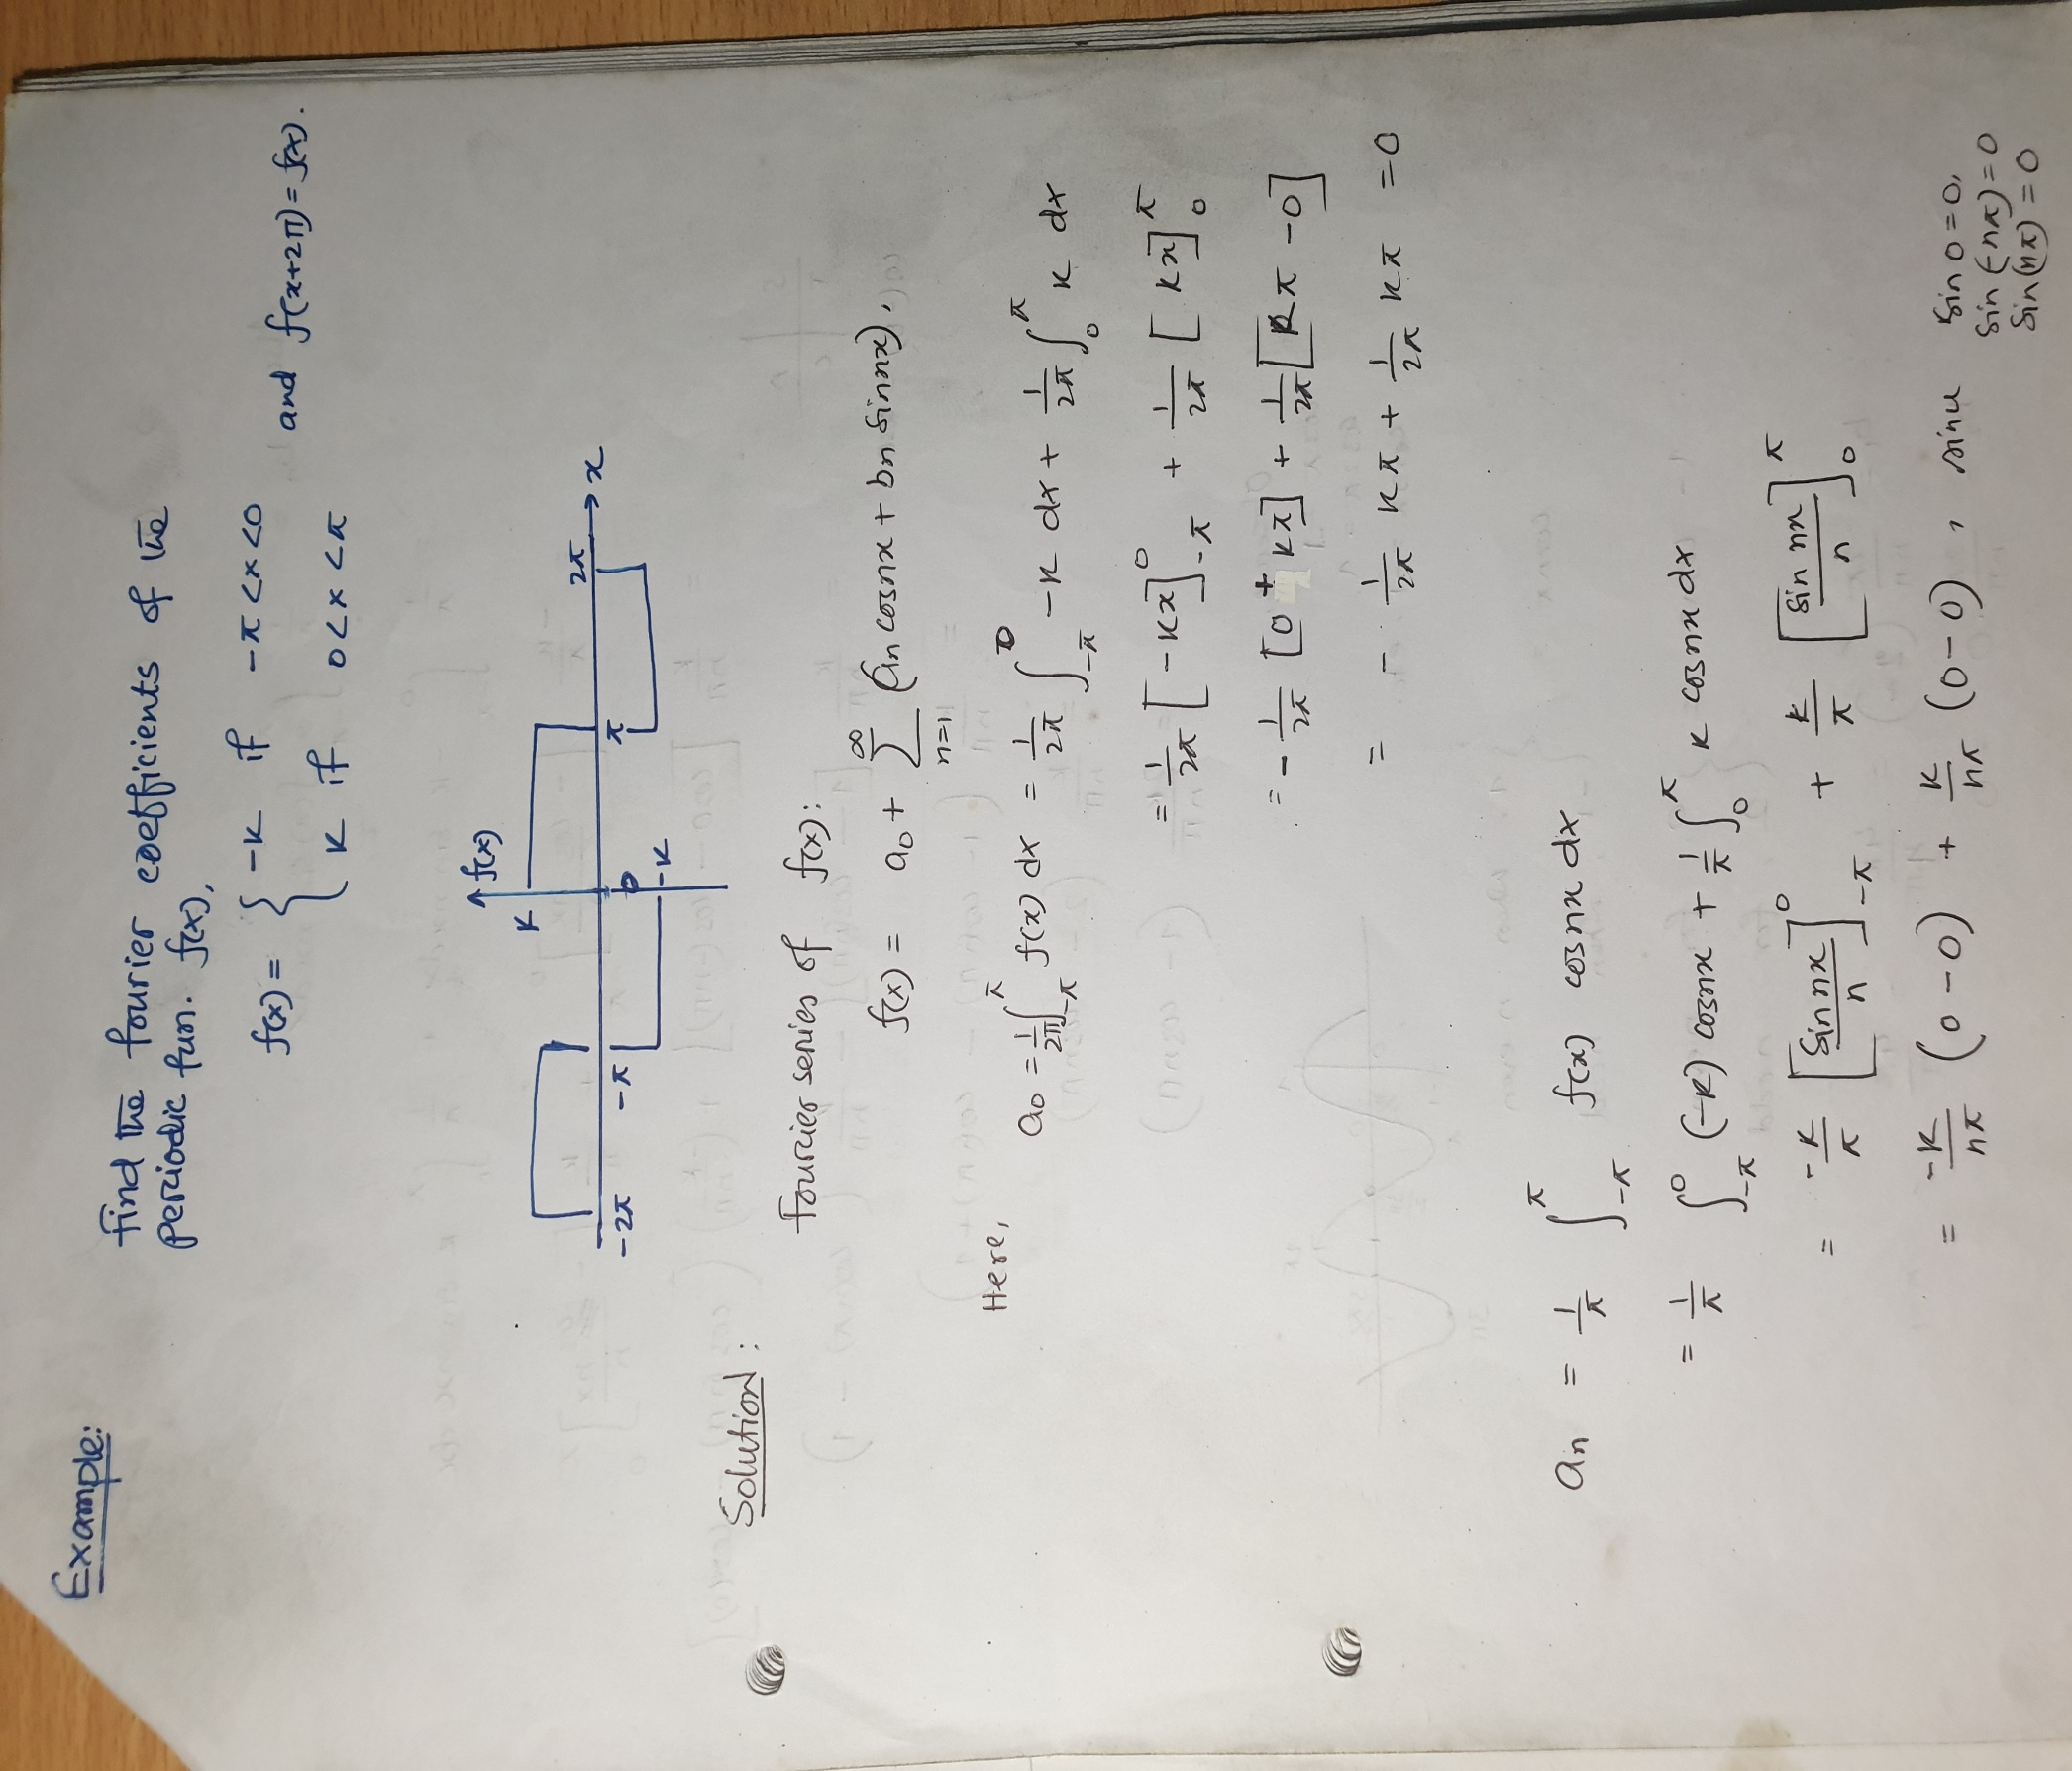 Example:
Find the fourier coefficients of the
Periodic fun. f(x),
f(x) = { -K if -π < x < 0
K if 0 < x < π
and f(x+2π) = f(x).
f(x)
K
-2π -π 0 π 2π x
-K
Solution:
Fourier series of f(x):
f(x) = a0 + ∑_{n=1}^{∞} (an cosnx + bn sinnx),
Here,
a0 = 1/2π ∫_{-π}^{π} f(x) dx = 1/2π ∫_{-π}^{0} -K dx + 1/2π ∫_{0}^{π} K dx
= 1/2π [-Kx]_{-π}^{0} + 1/2π [Kx]_{0}^{π}
= -1/2π [0 + Kπ] + 1/2π [Kπ - 0]
= - 1/2π Kπ + 1/2π Kπ = 0
an = 1/π ∫_{-π}^{π} f(x) cosnx dx
= 1/π ∫_{-π}^{0} (-K) cosnx + 1/π ∫_{0}^{π} K cosnx dx
= -K/π [sin nx/n]_{-π}^{0} + K/π [sin nx/n]_{0}^{π}
= -K/nπ (0-0) + K/nπ (0-0), since sin 0 = 0,
sin(-nπ) = 0
sin(nπ) = 0